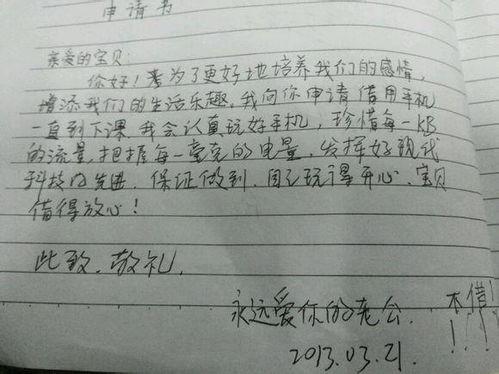 申请书
亲爱的宝贝:
你好!考为了更好地培养我们的感情,
增添我们的生活乐趣,我向你申请借用手机
一直到下课,我会认真玩好手机,珍惜每一KB
的流量,把握每一毫克的电量,发挥好现代
科技的先进,保证做到,自己玩得开心、宝贝
借得放心!
此致,敬礼,
永远爱你的老公.
不借!!!
2013.03.21.